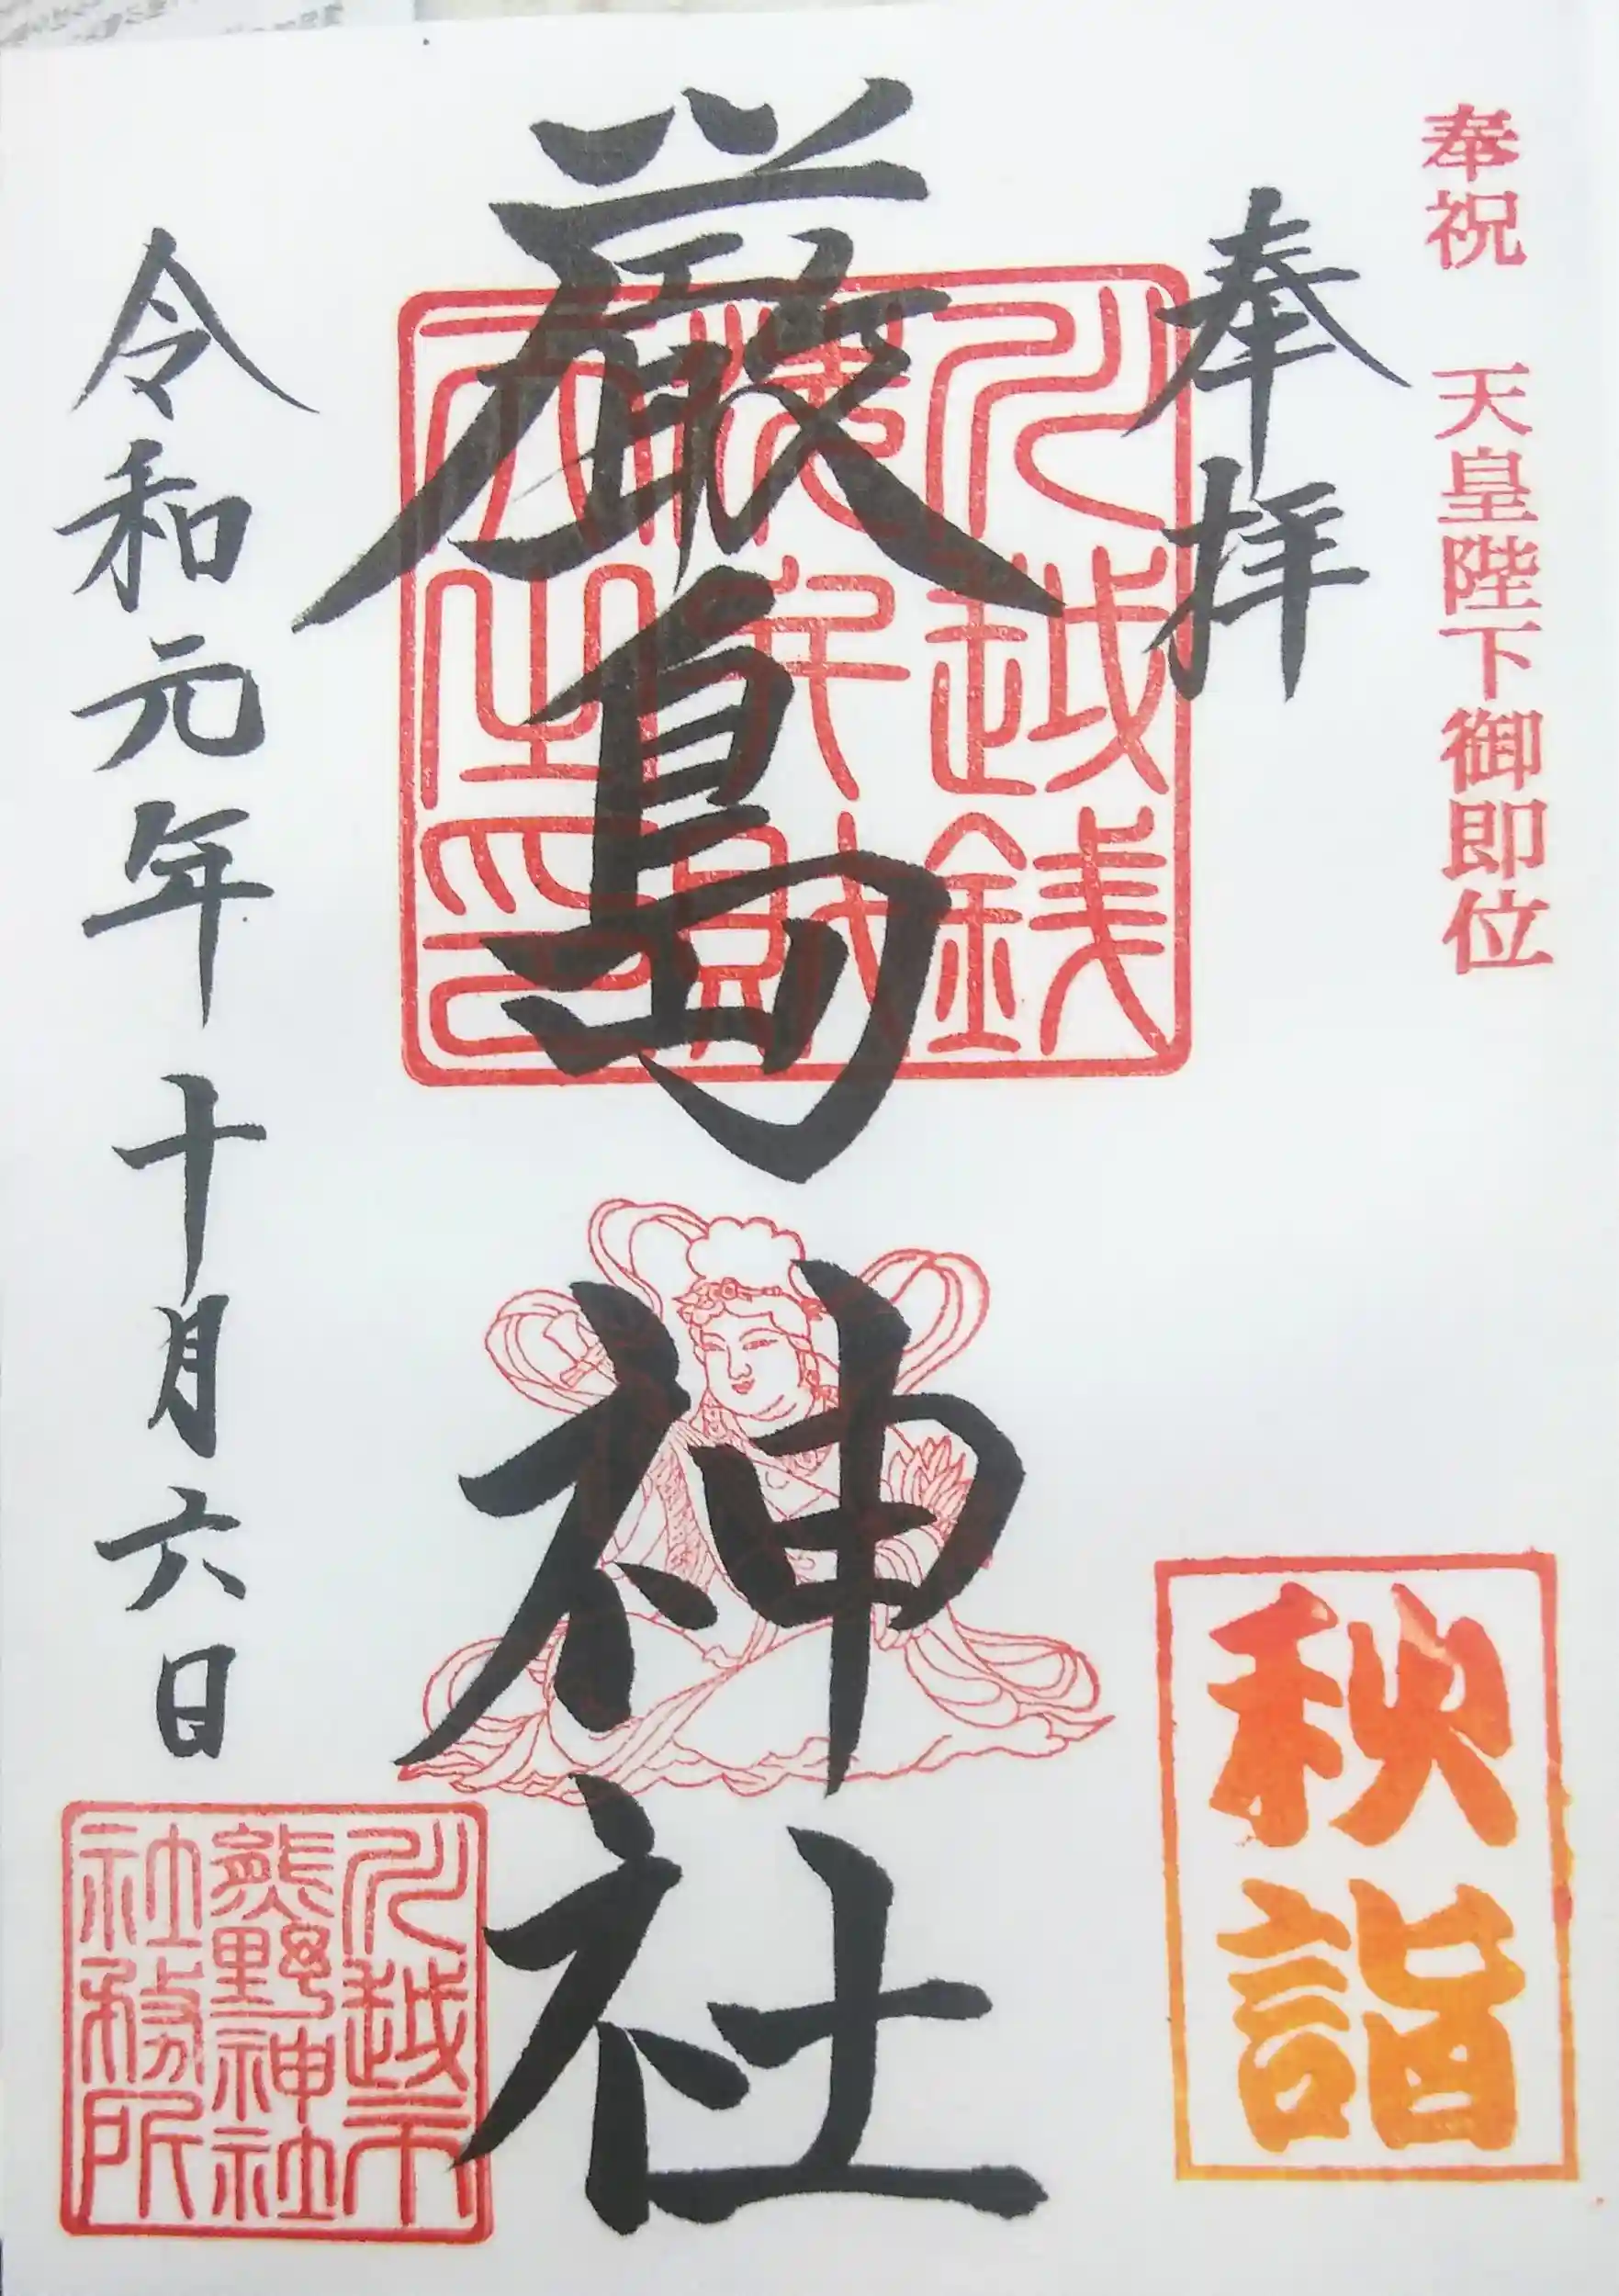 奉祝 天皇陛下御即位
奉拝
厳島神社
川越銭洗弁財天之印
令和元年十月六日
秋詣
川越市熊野神社社務所